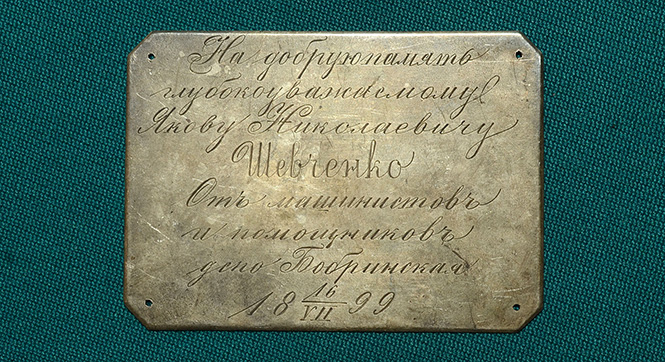 На добрую память
глубкоуважаемому
Якову Николаевичу
Шевченко
Отъ машинистовъ
и помощниковъ
депо Бобринская
18 16/VII 99